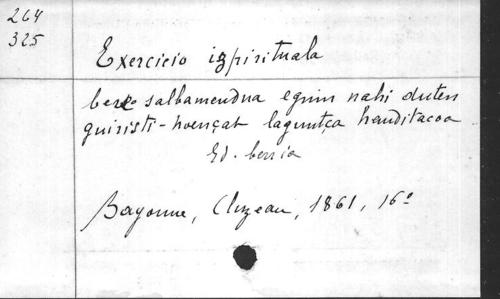 264
325
Exercicio izpirituala
bere salbamendua eguin nahi duten
guiristi-noençat laguntça handitacoa
Ed. berria
Bayonne, Cluzeau, 1861, 16º